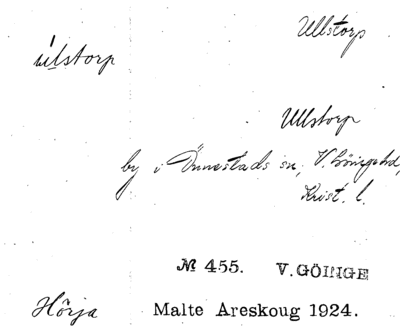 Ullstorp
úlstorp
Ullstorp
by i Önnestads sn, V. Göinge hd,
Krist. l.
№ 455. V. GÖINGE
Hörja Malte Areskoug 1924.